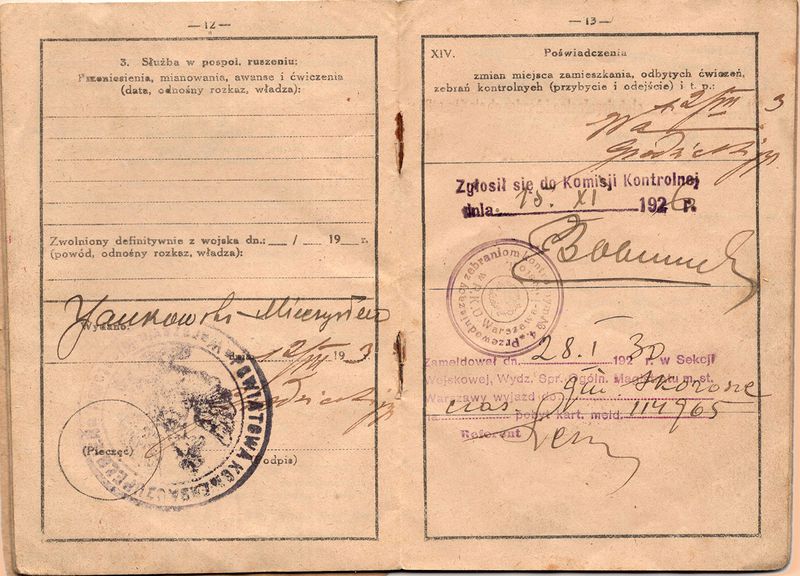 — 12 —
3. Służba w pospol. ruszeniu:
Przeniesienia, mianowania, awanse i ćwiczenia
(data, odnośny rozkaz, władza):
Zwolniony definitywnie z wojska dn.: / 19 r.
(powód, odnośny rozkaz, władza):
Jankowski Mieczysław
Wydano:
dnia 12/VII 193
POWIATOWA KOMENDA UZUPEŁNIEŃ
(Pieczęć)
(Podpis)
— 13 —
XIV. Poświadczenia
zmian miejsca zamieszkania, odbytych ćwiczeń,
zebrań kontrolnych (przybycie i odejście) i t. p.:
Zgłosił się do Komisji Kontrolnej
dnia 15. XI 1926 r.
Przewodniczący zebraniom kontrolnym
w P.K.U. Warszawa
Zameldował dn. 28.I 1930 r. w Sekcji
Wojskowej, Wydz. Spr. Ogóln. Magistratu m. st.
Warszawy wyjazd do gm. Skorosze
na czas pobyt kart. meld. 114965
Referent